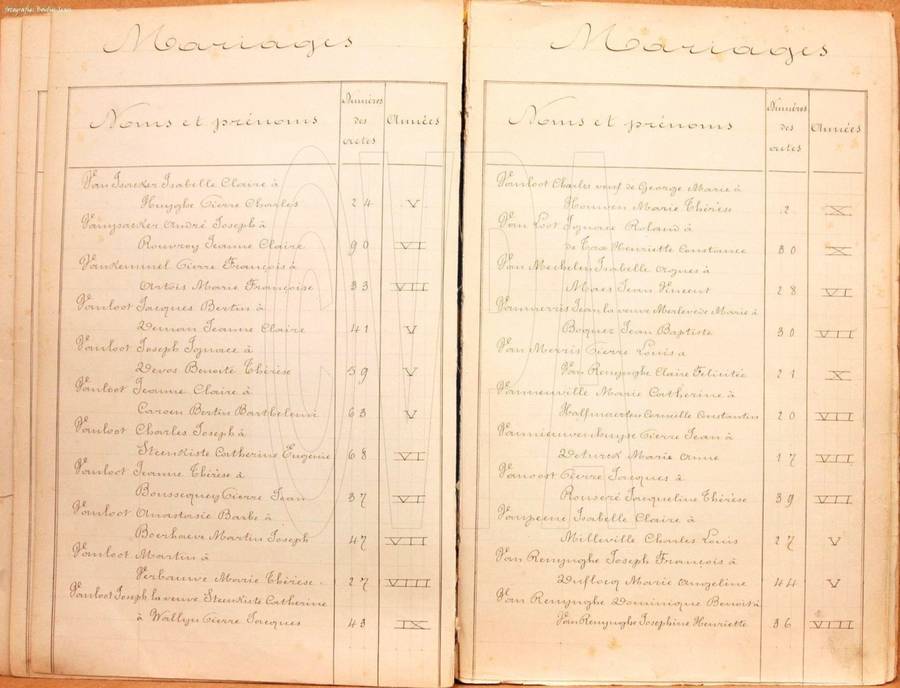 Mariages
Noms et prénoms
Numéros des actes
Années
Van Isacker Isabelle Claire à
Huyghe Pierre Charles 24 V
Vanysacker André Joseph à
Rouvroy Jeanne Claire 90 VI
Vankemmel Pierre François à
Artois Marie Françoise 33 VII
Vanloot Jacques Bertin à
Deman Jeanne Claire 41 V
Vanloot Joseph Ignace à
Devos Benoite Thérèse 59 V
Vanloot Jeanne Claire à
Caroen Bertin Barthelemi 63 V
Vanloot Charles Joseph à
Steenkiste Catherine Eugenie 68 VI
Vanloot Jeanne Thérèse à
Boussequey Pierre Jean 37 VI
Vanloot Anastasie Barbe à
Boerhaeve Martin Joseph 47 VII
Vanloot Martin à
Verbauwe Marie Thérèse 27 VIII
Vanloot Joseph la veuve Steenkiste Catherine
à Wallyn Pierre Jacques 43 IX
Mariages
Noms et prénoms
Numéros des actes
Années
Vanloot Charles veuf de George Marie à
Houwen Marie Thérèse 2 X
Van Loot Ignace Roland à
de Cra Henriette Constance 30 X
Van Mechelen Isabelle Agnes à
Maes Jean Vincent 28 VI
Vanmerris Jean la veuve Merlevede Marie à
Boquez Jean Baptiste 30 VII
Van Merris Pierre Louis a
Van Renynghe Claire Felicitée 21 X
Vanneuville Marie Catherine à
Halfmaerten Corneille Constantin 20 VII
Vannieuwenhuyse Pierre Jean à
Deturck Marie Anne 17 VII
Vanoost Pierre Jacques à
Rouseré Jacqueline Thérèse 39 VII
Vanpeene Isabelle Claire à
Milleville Charles Louis 27 V
Van Renynghe Joseph François à
Duflocq Marie Angeline 44 V
Van Renynghe Dominique Benoit à
Van Renynghe Josephine Henriette 36 VIII